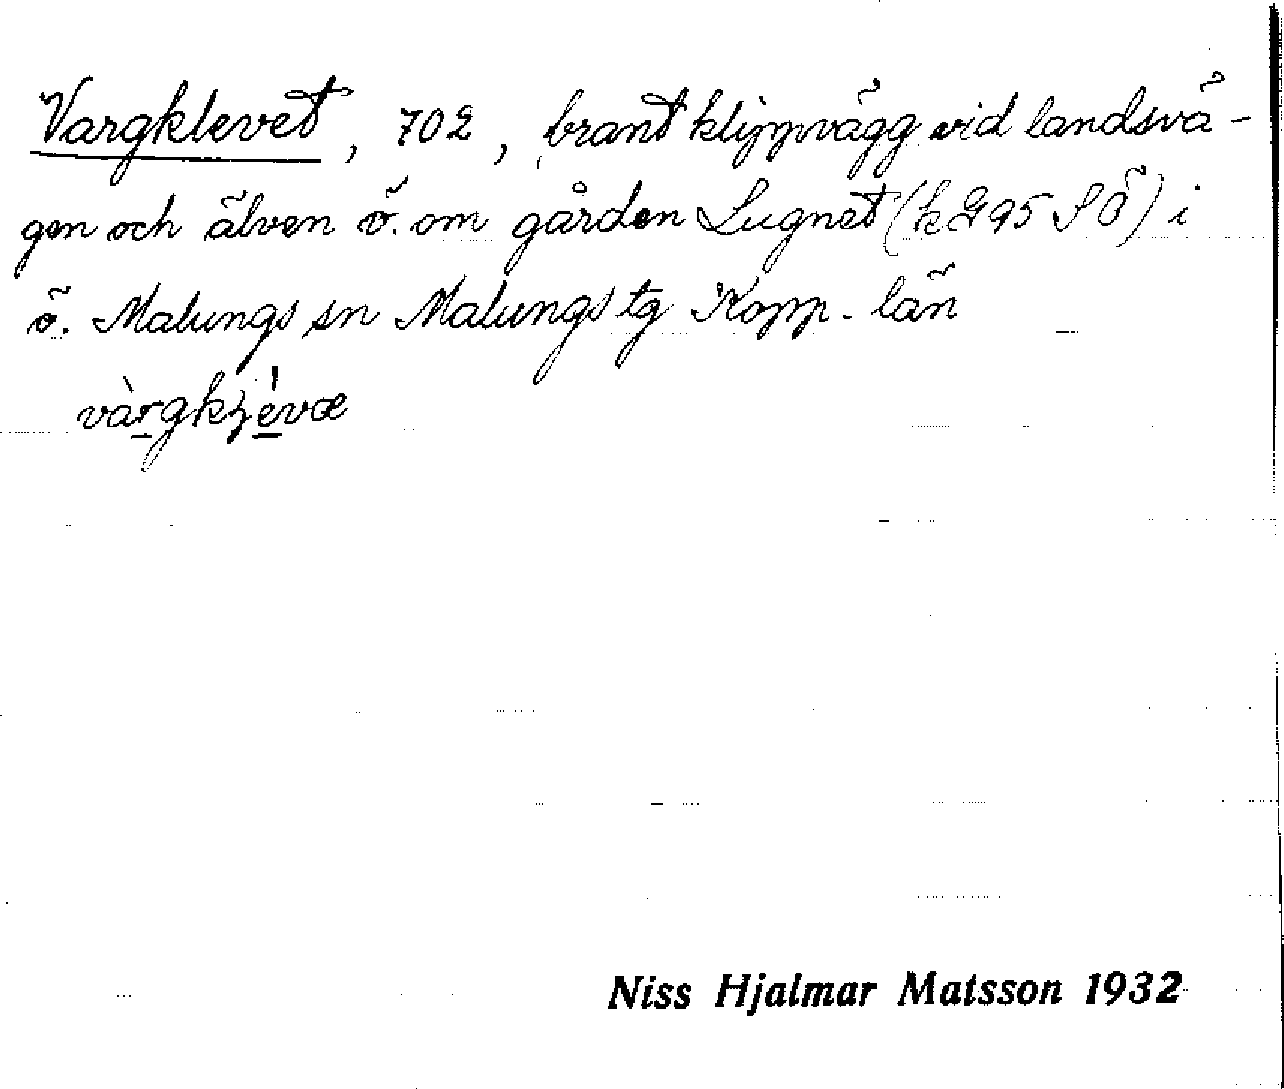 Vargklevet, 702, brant klippvägg vid landsvä-
gen och älven ö. om gården Lugnet (k G95 SÖ) i
ö. Malungs sn Malungs tg Kopp. län
Niss Hjalmar Matsson 1932